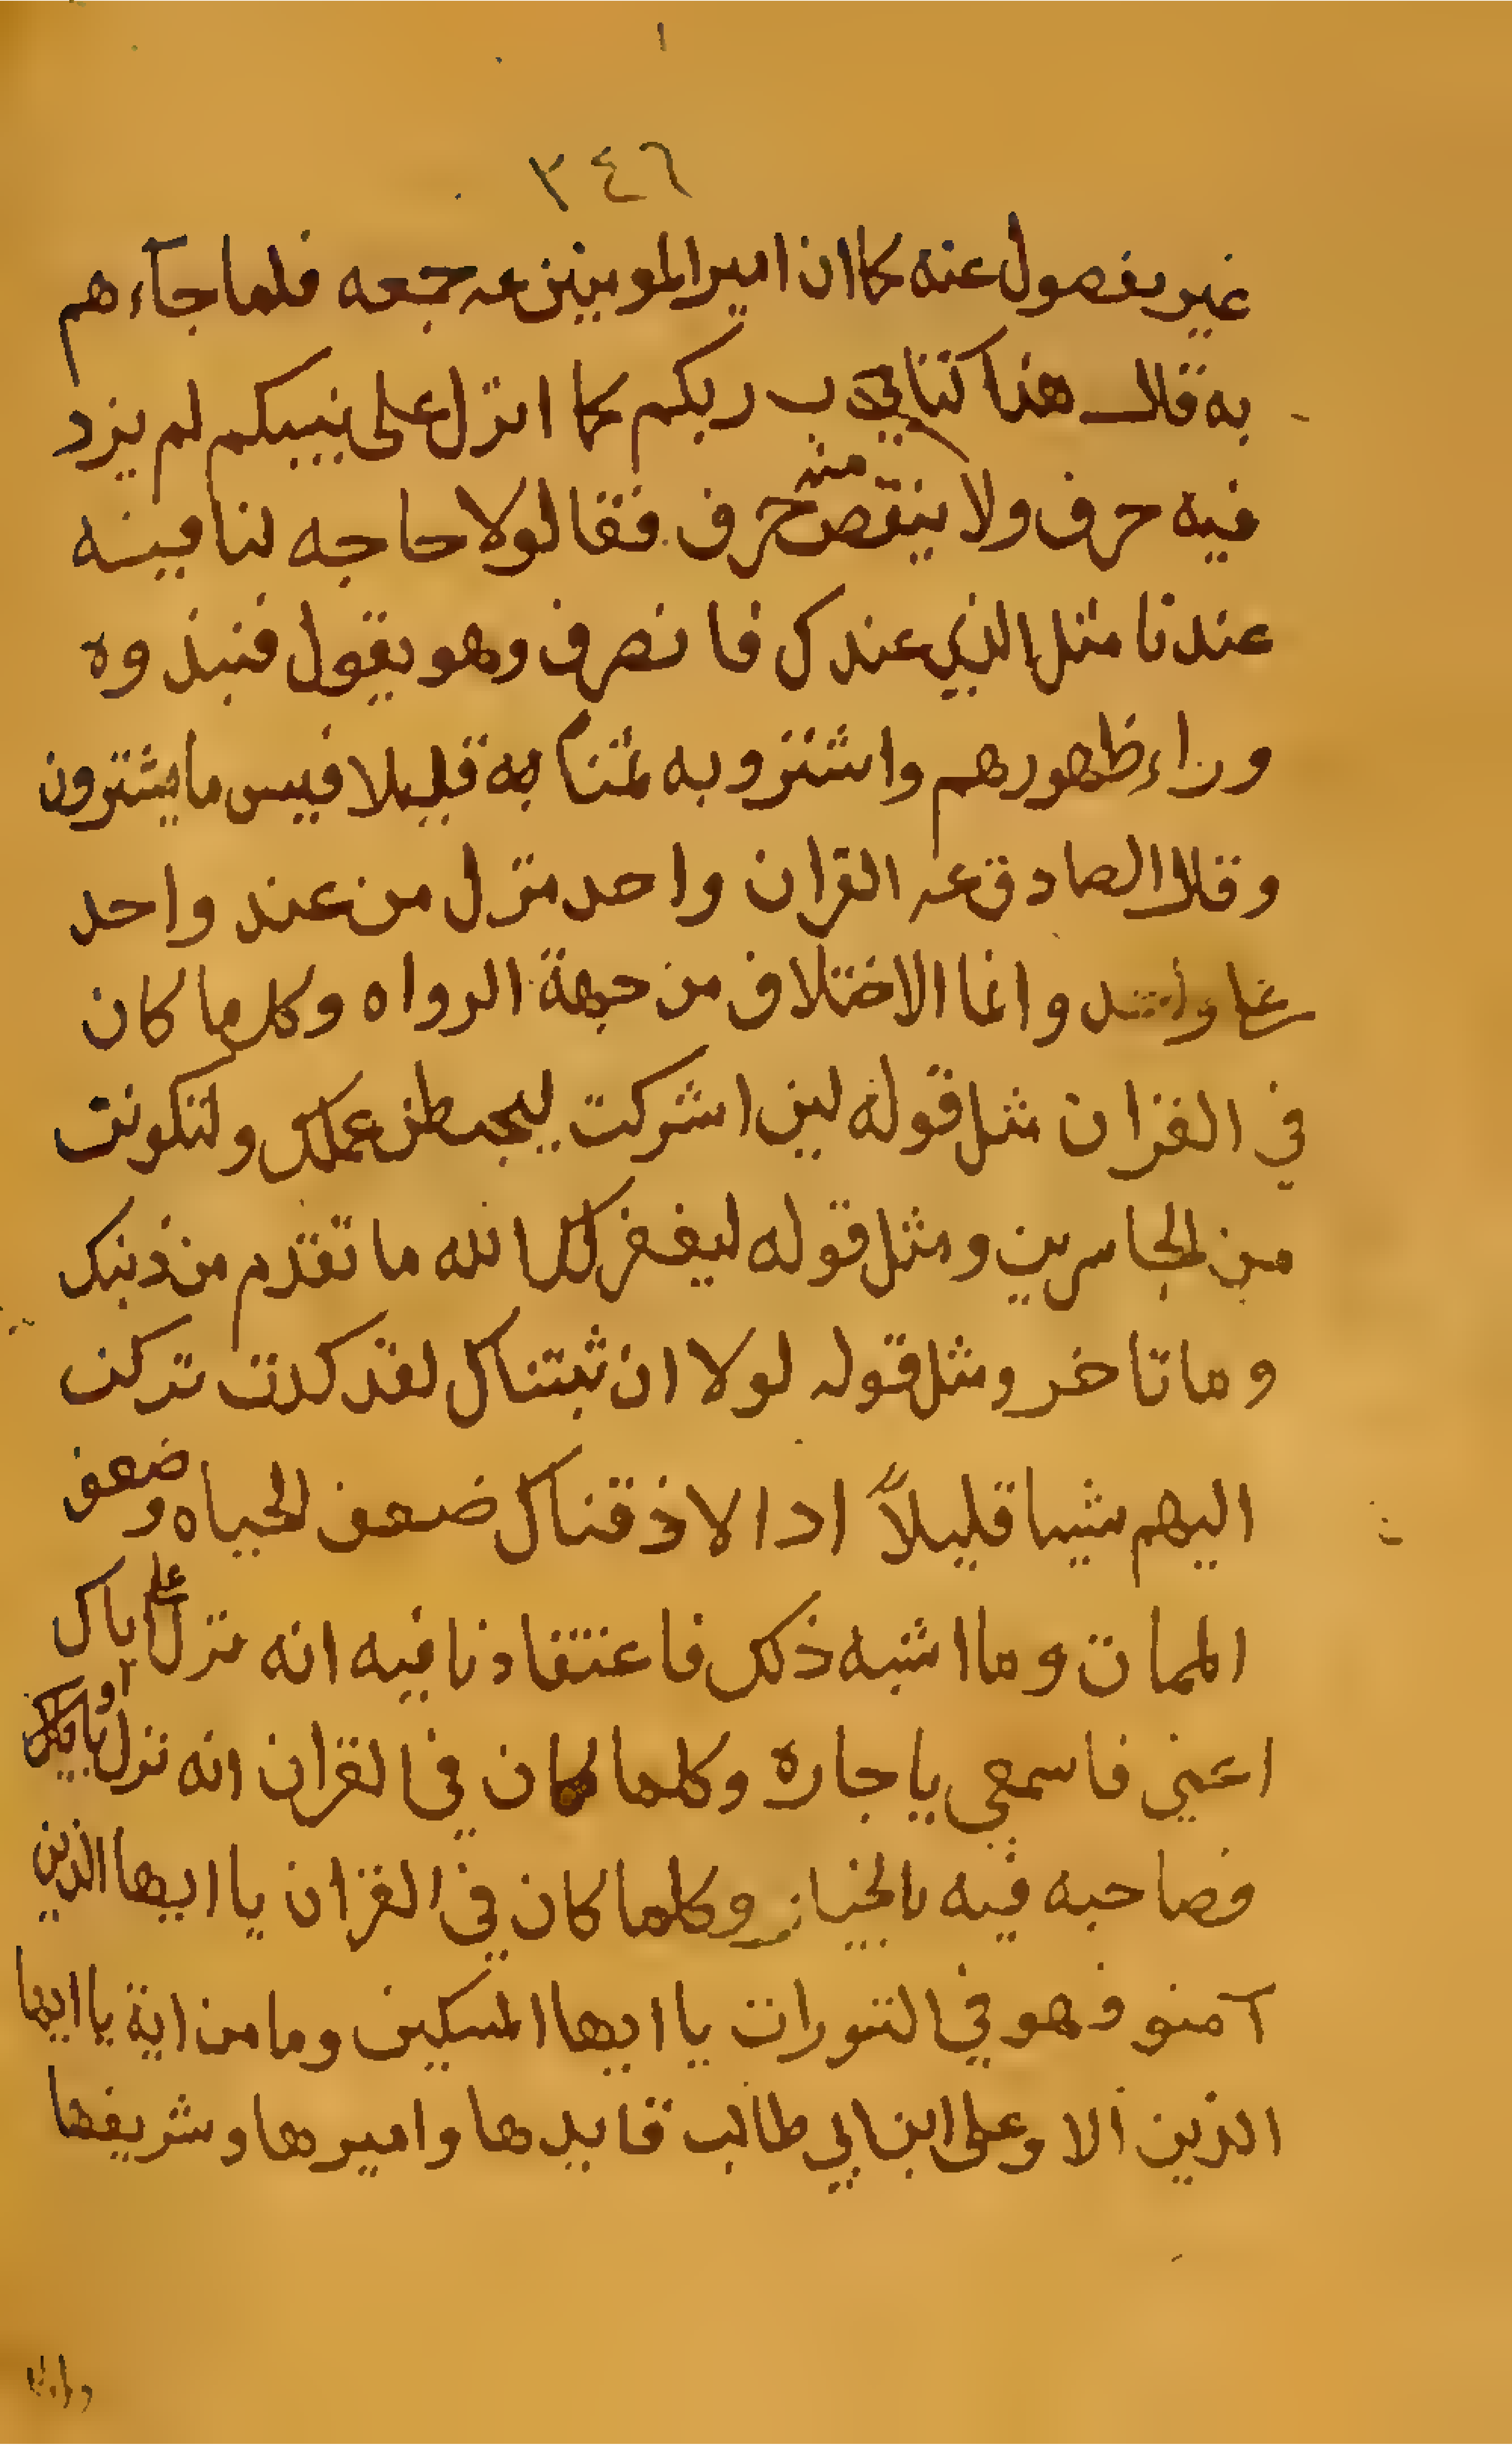 ٣٤٦
غير مفصول عنه كما ان امير المومنين عه جمعه فلما جآءهم
به قال هذا كتاب ربكم كما انزل على نبيكم لم يزد
فيه حرف ولا ينقص منه حرف فقالو لا حاجه لنا فيه
عندنا مثل الذي عندك فانصرف وهو يقول فنبذوه
وراء ظهورهم واشتروبه ثمنا به قليلا فبيس ما يشترون
وقال الصادق عه القران واحد منزل من عند واحد
على واحد وانما الاختلاف من جهة الرواه وكلما كان
في القران مثل قوله لين اشركت ليحبطن عملك ولتكونت
من الخاسرين ومثل قوله ليغفر لك الله ما تقدم من ذنبك
وما تاخر ومثل قوله لولا ان ثبتناك لقد كدت تركن
اليهم شيا قليلاً اذا لاذقناك ضعف الحياه وضعف
الممات وما اشبه ذلك فاعتقادنا فيه انه نزل على اياك
اعني فاسمعي يا جاره وكلما كان في القران انه نزل باو
فصاحبه فيه بالخيار وكلما كان في القران يا ايها الذين
آمنو فهو في التورات يا ايها المسكين وما من اية يا ايها
الذين الا وعلى ابن ابي طالب قايدها واميرها وشريفها